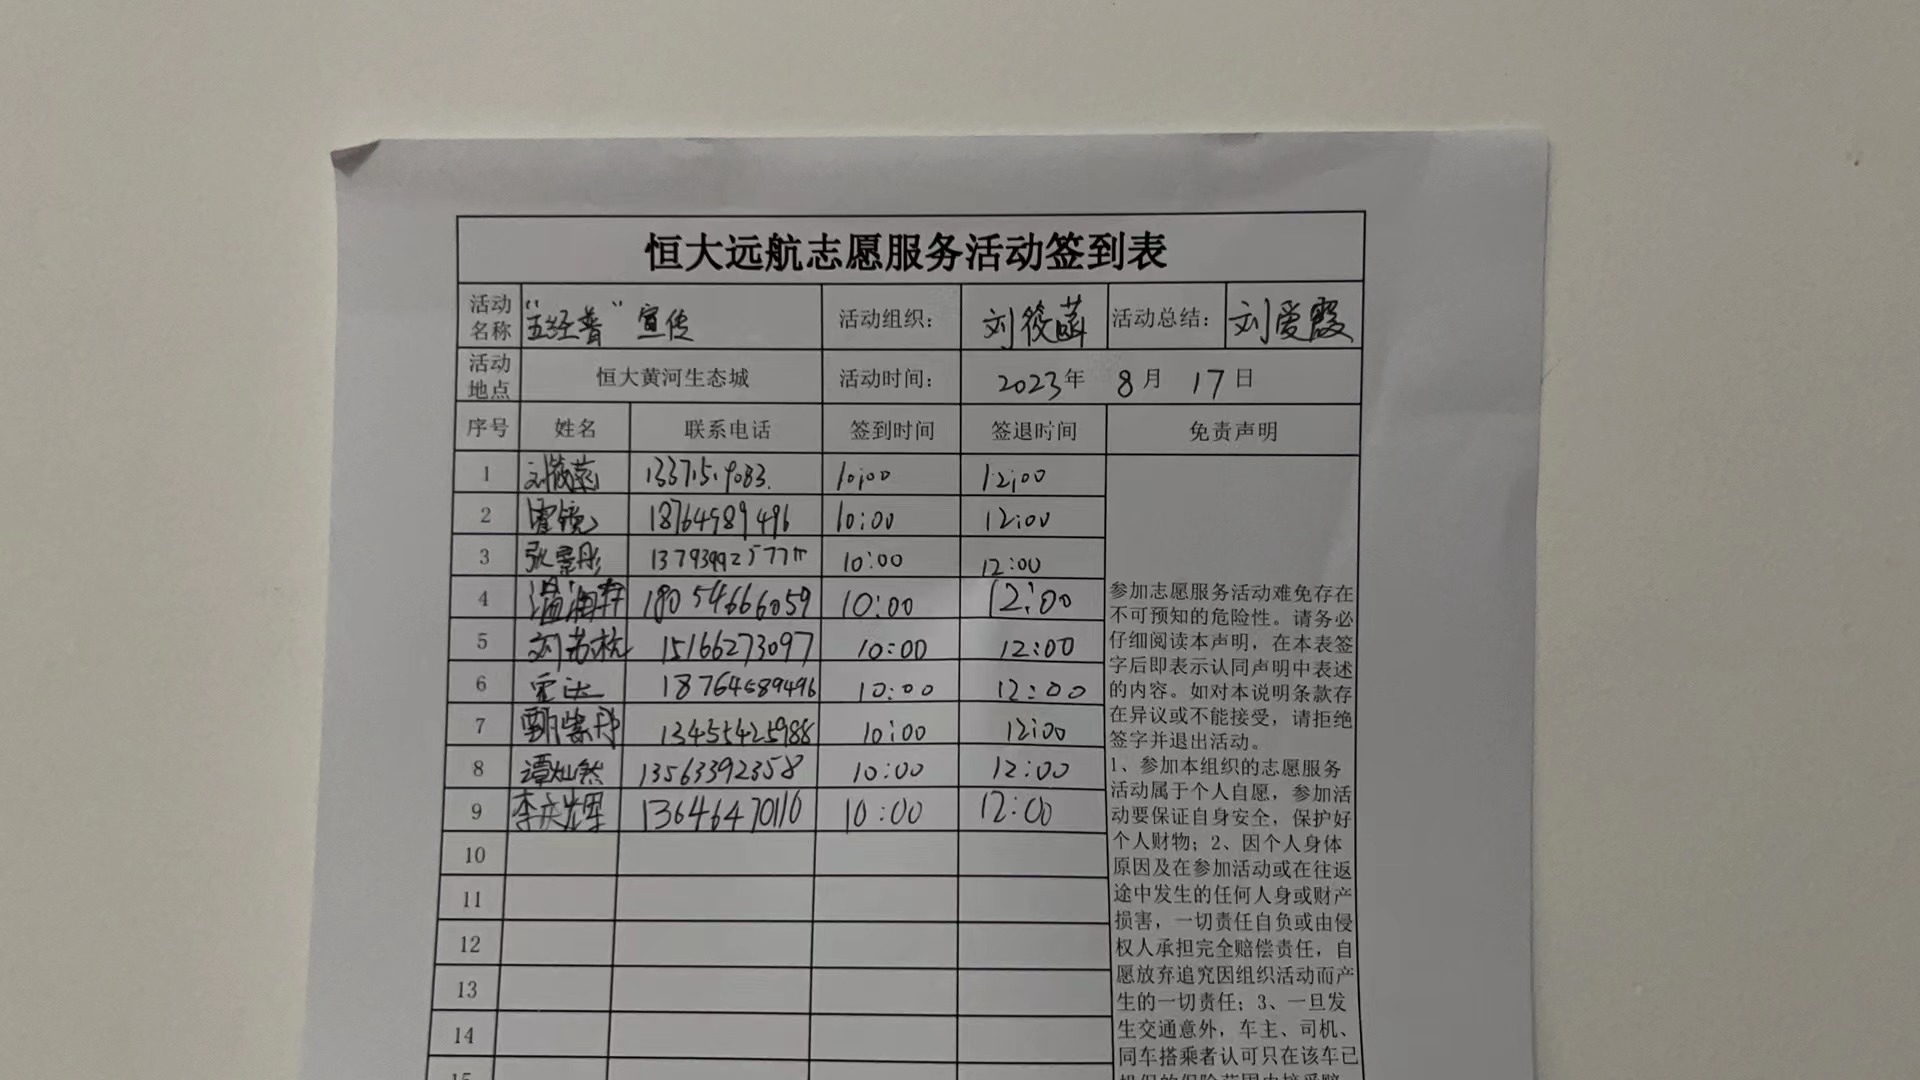 恒大远航志愿服务活动签到表
活动名称 “五经普”宣传 活动组织: 刘筱菡 活动总结: 刘爱霞
活动地点 恒大黄河生态城 活动时间: 2023年 8月 17日
序号 姓名 联系电话 签到时间 签退时间 免责声明
1 刘筱菡 13371519083 10:00 12:00
2 18764589496 10:00 12:00
3 张景彤 10:00 12:00
4 温润轩 18054666059 10:00 12:00
5 刘苏杭 15166273097 10:00 12:00
6 18764589496 10:00 12:00
7 甄紫彤 13455425988 10:00 12:00
8 谭灿然 13563392358 10:00 12:00
9 李庆辉 13646470110 10:00 12:00
10
11
12
13
14
15
参加志愿服务活动难免存在
不可预知的危险性。请务必
仔细阅读本声明，在本表签
字后即表示认同声明中表述
的内容。如对本说明条款存
在异议或不能接受，请拒绝
签字并退出活动。
1、参加本组织的志愿服务
活动属于个人自愿，参加活
动要保证自身安全，保护好
个人财物；2、因个人身体
原因及在参加活动或在往返
途中发生的任何人身或财产
损害，一切责任自负或由侵
权人承担完全赔偿责任，自
愿放弃追究因组织活动而产
生的一切责任；3、一旦发
生交通意外，车主、司机、
同车搭乘者认可只在该车已